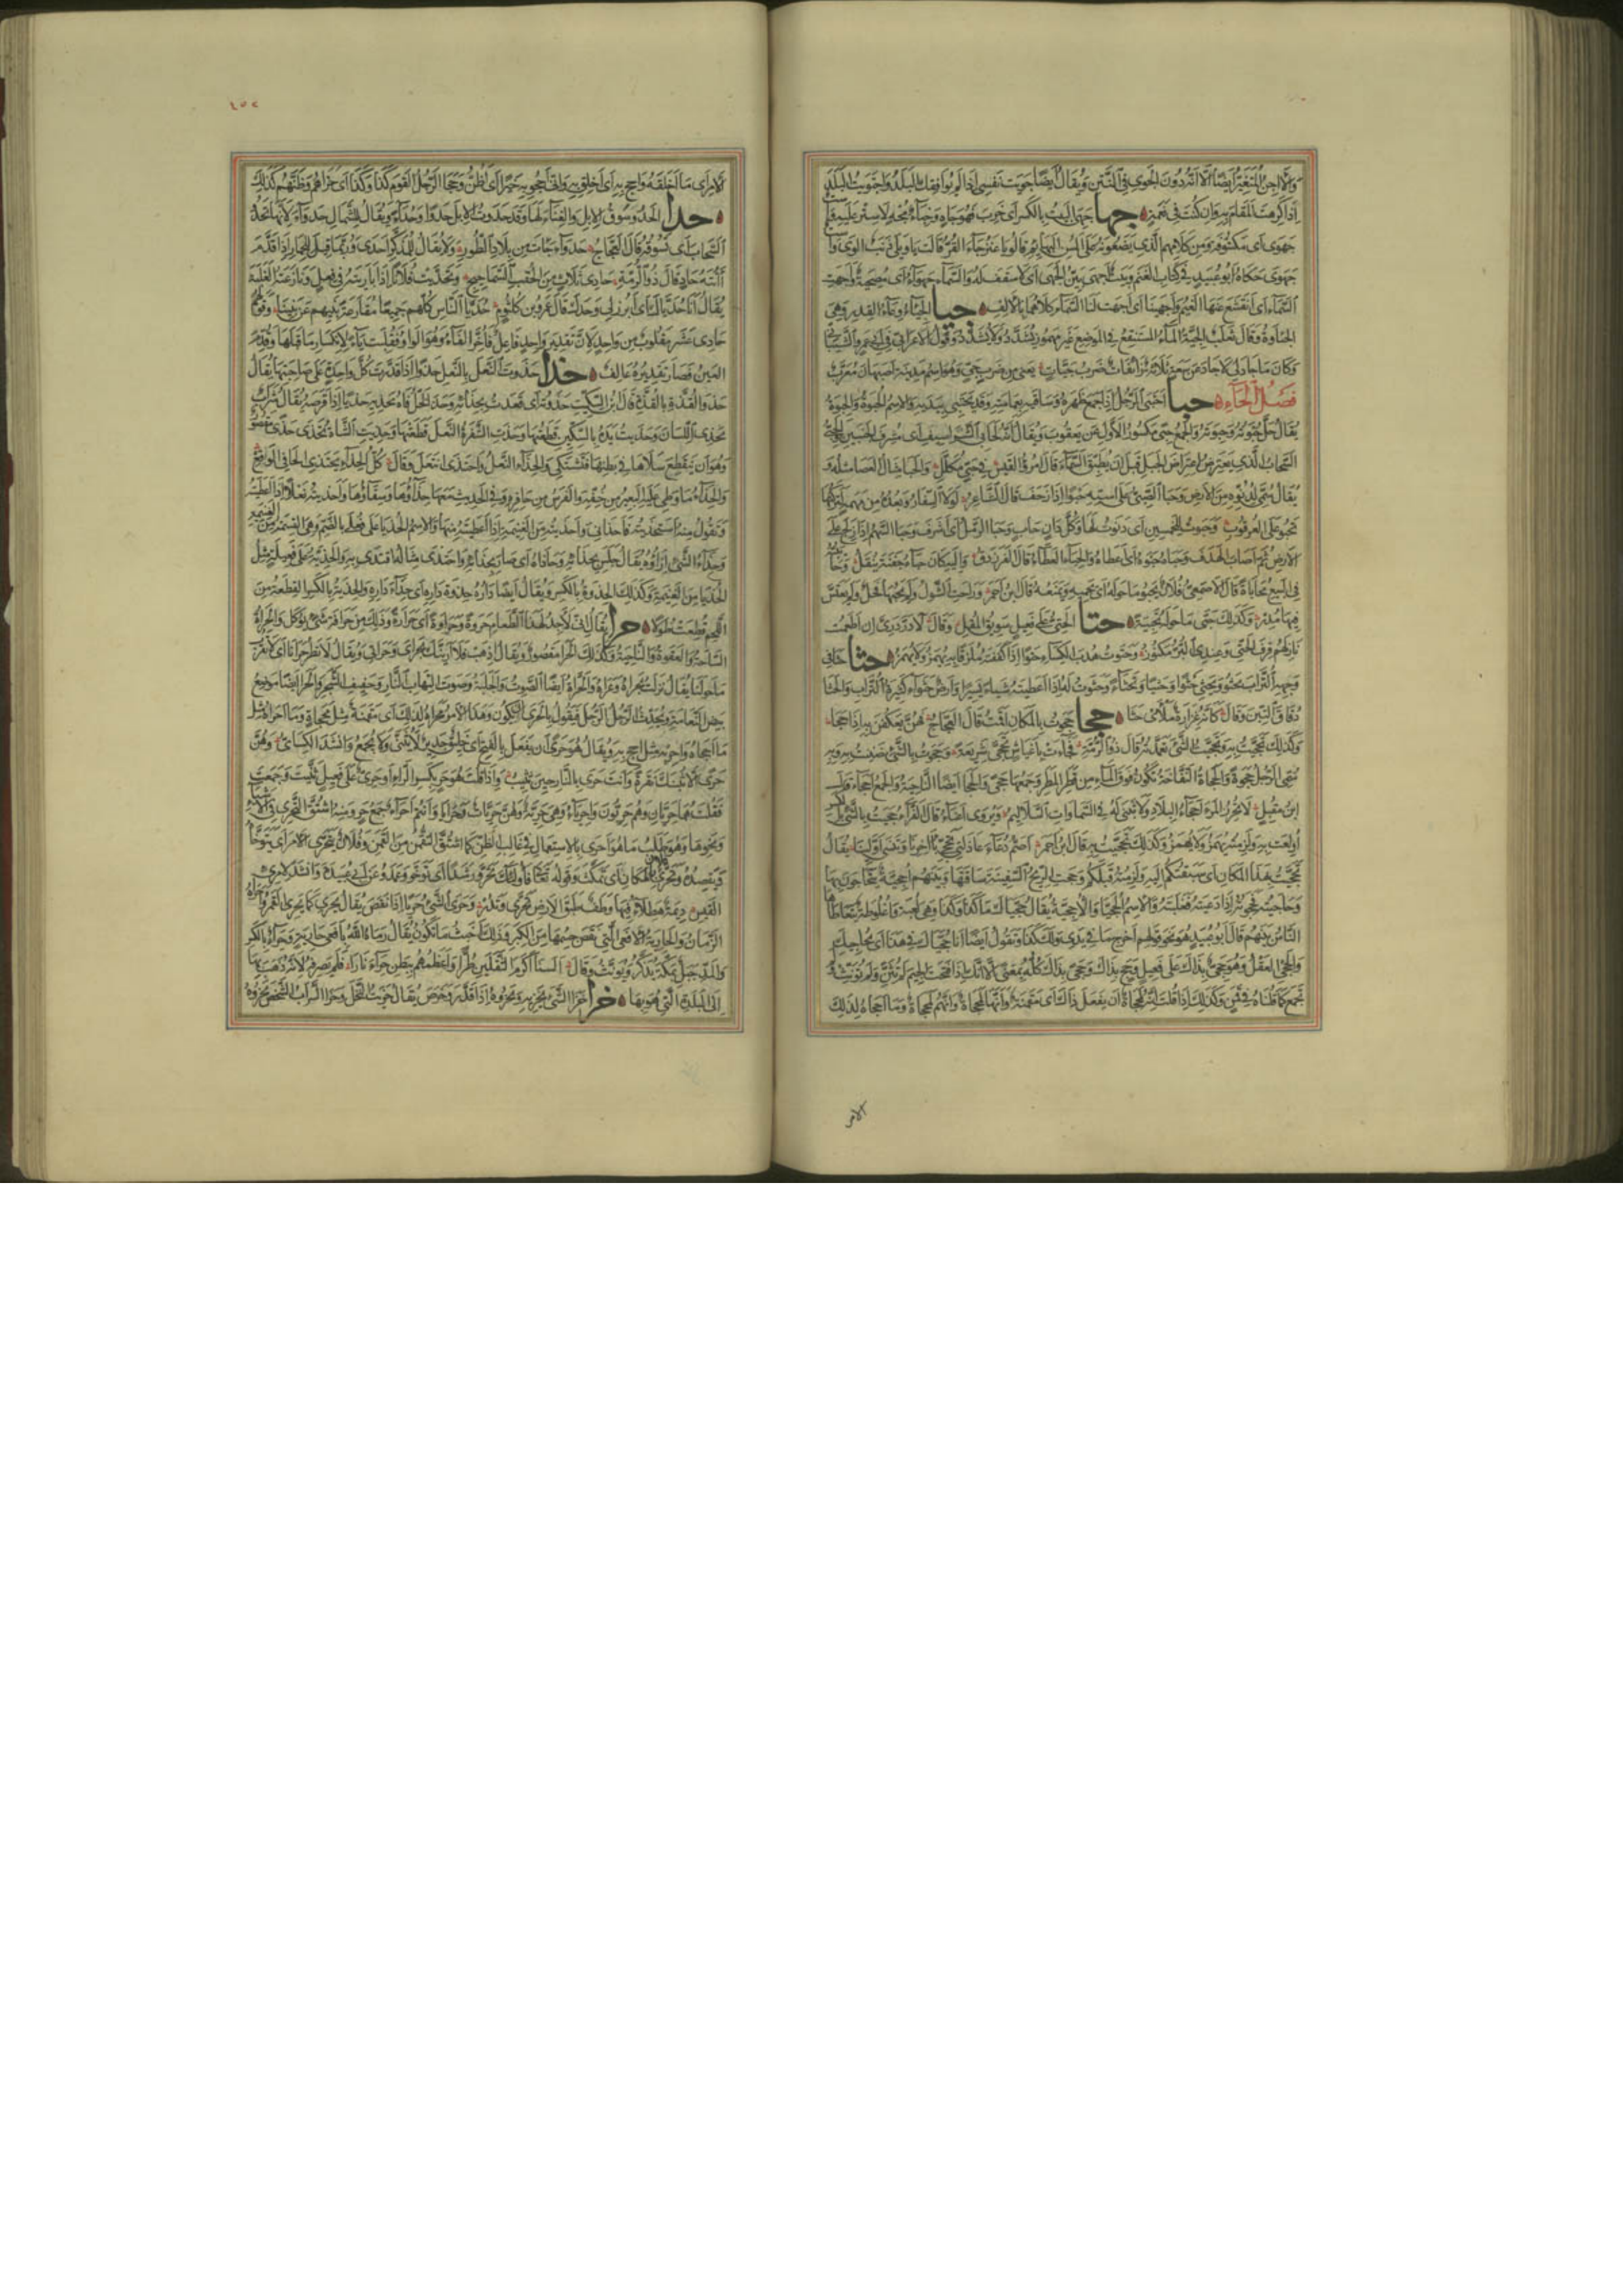 والآجن المتغير ايضا الا انه دون الجوي في النتن ويقال ايضا جويت نفسي اذا لم يوافقك البلد واجتويت البلد
اذا كرهت المقام به وان كنت في نعمة جها جهي البيت بالكسر اي خرب فهو جاه وخباء مجه لا ستر عليه
جهوى اي مكشوفة ومن كلامهم الذي يضعونه على السن البهائم قالوا يا عنز جاء القر قالت يا ويلي ذنب الوى واست
جهوى حكاه ابو عبيد في كتاب الغنم وبيت اجهى بين الجهى اي لا سقف له والسماء جهواء اي مصحية واجهت
السماء اي انقشع عنها الغيم واجهينا اي اجهت لنا السماء كلاهما بالالف جيا الجياء وعاء القدر وهي
الجئاوة وقال ثعلب الجية الماء المستنقع في الموضع غير مهموز يشدد ولا يشدد وقول الاعرابي في ابي عمرو الشيباني
وكان ما جاد لي لا جاد عن سعة ثلاثة زائفات ضرب جيات يعني من ضرب جي وهو اسم مدينة اصبهان معرب
فصل الحاء حبا احتبى الرجل اذا جمع ظهره وساقيه بعمامته وقد يحتبي بيديه والاسم الحبوة والحبوة
يقال حل حبوته وحبوته والجمع حبى مكسور الاول عن يعقوب ويقال
السحاب الذي يعترض اعتراض الجبل قبل ان يطبق السماء قال امرؤ القيس في حبي مكلل والحبا مثال العصا مثله و
يقال سمي لدنوه من الارض وحبا الصبي على استه حبوا اذا زحف قال الشاعر لولا السفار وبعده من مهمه لتركتها
تحبو على العرقوب وحبوت للخمسين اي دنوت لها وكل دان حاب وحبا الرمل اي اشرف وحبا السهم اذا زلج على
الارض ثم اصاب الهدف وحباه حبوة اي اعطاه والحباء العطاء قال الفرزدق واليه كان حباء جفنة ينقل وحابى
في البيع محاباة قال الاصمعي فلان يحبو ما حوله اي يحميه ويمنعه قال ابن احمر وراحت الشول ولم يحبها فحل ولم يعتس
فيها مدر وكذلك حبى ما حوله تحبية حتا الحتي على فعيل سويق المقل وقال لا در دري ان اطعمت
نازلهم قرف الحتي وعندي البر مكنوز وحتوت هدب الكساء حتوا اذا كففته ملزقا به يهمز ولا يهمز حثا حثا في
وجهه التراب يحثو ويحثي حثوا وحثيا وتحثاء وحثوت له اذا اعطيته شيئا يسيرا وارض حثواء كثيرة التراب والحثا
دقاق التبن وقال كانه غرارة ملأى حثا حجا حجوت بالمكان اقمت قال العجاج فهن يعكفن به اذا حجا
وكذلك تحجيت به وتحجيت الشيء تعمدته قال ذو الرمة فجاءت باغباش تحجى شريعة وحجوت بالشيء ضننت به وبه
سمي الرجل حجوة والحجاة النفاخة تكون فوق الماء من قطر المطر وجمعها حجى والحجا ايضا الناحية والجمع احجاء قال
ابن مقبل لا تحرز المرء احجاء البلاد ولا تبنى له في السماوات السلاليم ويروى اعناء قال الفراء حجئت بالشيء
اولعت به ولزمته يهمز ولا يهمز وكذلك تحجيت به قال ابن احمر اصم دعاء عاذلتي تحجى بآخرنا وتنسى اولينا يقال
تحجيت بهذا المكان اي سبقتكم اليه ولزمته قبلكم وحجت الريح السفينة ساقتها وبينهم احجية يتحاجون بها
وحاجيته فحجوته اذا داعيته فغلبته والاسم الحجيا والاحجية يقال حجياك ما كذا وكذا وهي لعبة واغلوطة يتعاطاها
الناس بينهم قال ابو عبيد هو نحو قولهم اخرج ما في يدي ولك كذا وتقول ايضا انا حجياك في هذا اي محاجيك
والحجى العقل وهو حجي بذاك على فعيل وحج بذاك وحجى بذاك كله بمعنى الا انك اذا فتحت الجيم لم تثن ولم تؤنث ولم
تجمع كما قلناه في قمن وكذلك اذا قلت انه لمحجاة ان يفعل ذاك اي مقمنة وانها لمحجاة وانهم لمحجاة وما احجاه لذلك
الامر
٤٥٢
الامر اي ما اخلقه واحج به اي اخلق به واني احجو به خيرا اي اظن وحجا الرجل القوم كذا وكذا اي حزاهم وظنهم كذلك
حدا الحدو سوق الابل والغناء لها وقد حدوت الابل حدوا وحداء ويقال للشمال حدواء لانها تحدو
السحاب اي تسوقه قال العجاج حدواء جاءت من بلاد الطور ولا يقال للمذكر احدى وربما قيل للحمار اذا قدم
آتنه حاد قال ذو الرمة حادي ثلاث من الحقب السماحيج وتحديت فلانا اذا باريته في فعل ونازعته الغلبة
يقال انا حدياك اي ابرز لي وحدك قال عمرو بن كلثوم حديا الناس كلهم جميعا مقارعة بنيهم عن بنينا وقولهم
حادي عشر مقلوب من واحد لان تقدير واحد فاعل فاخروا الفاء وهو الواو فقلبت ياء لانكسار ما قبلها وقدم
العين فصار تقديره عالف حذا حذوت النعل بالنعل حذوا اذا قدرت كل واحدة على صاحبتها يقال
حذو القذة بالقذة قال ابن السكيت حذوته اي قعدت بحذائه وحذى الخل فاه يحذيه حذيا اذا قرصه يقال شراب
يحذي اللسان وحذيت يده بالسكين قطعتها وحذت الشفرة النعل قطعتها وحذيت الشاة تحذى حذى مقصور
وهو ان ينقطع سلاها في بطنها فتشتكي والحذاء النعل واحتذى انتعل وقال كل الحذاء يحتذي الحافي الوقع
والحذاء ما وطئ عليه البعير من خفه والفرس من حافره وفي الحديث معها حذاؤها وسقاؤها واحذيته نعلا اذا اعطيته
وتقول منه استحذيته فاحذاني واحذيته من الغنيمة اذا اعطيته منها والاسم الحذيا على فعلى بالضم وهي القسمة من الغنيمة
وحذاء الشيء ازاؤه يقال جلس بحذائه وحاذاه اي صار بحذائه واحتذى مثاله اقتدى به والحذية على فعيلة مثل
الحذيا من الغنيمة وكذلك الحذوة بالكسر ويقال ايضا داره حذوة داره اي حذاء داره والحذية بالكسر القطعة من
اللحم قطعت طولا حرا يقال اني لاجد لهذا الطعام حروة وحراوة اي حرارة وذلك من حرافة شيء يؤكل والحراة
الساحة والعقوة والناحية وكذلك الحرا مقصور ويقال اذهب فلا ارينك بحراي وحراتي ويقال لا تطر حرانا اي لا تقرب
ما حولنا يقال نزلت بحراه وعراه والحراة ايضا الصوت والجلبة وصوت التهاب النار وحفيف الشجر والحرا ايضا موضع
بيض النعامة ويحدث الرجل الرجل فيقول بالحرى ان يكون وهذا الامر محراة لذلك اي مقمنة مثل محجاة وما احراه مثل
ما احجاه واحر به مثل احج به ويقال هو حرى ان يفعل بالفتح اي خليق جدير لا يثنى ولا يجمع وانشد الكسائي وهن
حرى الا يثبنك نقرة وانت حرى بالنار حين تثيب واذا قلت هو حر بكسر الراء او حري على فعيل ثنيت وجمعت
فقلت هما حريان وهم حريون واحرياء وهي حرية وهن حريات وحرايا وانتم احراء جمع حر ومنه اشتق التحري في الاشياء
ونحوها وهو طلب ما هو احرى بالاستعمال في غالب الظن كما اشتق التقمن من القمن وفلان يتحرى الامر اي يتوخاه
ويقصده وتحرى فلان بالمكان اي تمكث وقوله تعالى فاولئك تحروا رشدا اي توخوا وعمدوا عن ابي عبيدة وانشد لامرئ
القيس ديمة هطلاء فيها وطف طبق الارض تحرى وتدر وحرى الشيء حريا اذا نقص يقال يحري كما يحري القمر واحراه
الزمان والحارية الافعى التي نقص جسمها من الكبر وذلك اخبث ما تكون يقال رماه الله بافعى حارية وحراء بالكسر
والمد جبل بمكة يذكر ويؤنث وقال السنا اكرم الثقلين طرا واعظمهم ببطن حراء نارا فلم يصرفه لانه ذهب به
الى البلدة التي هو بها حزا حزا الشيء يحزيه ويحزوه اذا قدر وخرص يقال حزيت النخل وحزا السراب الشخص يحزوه